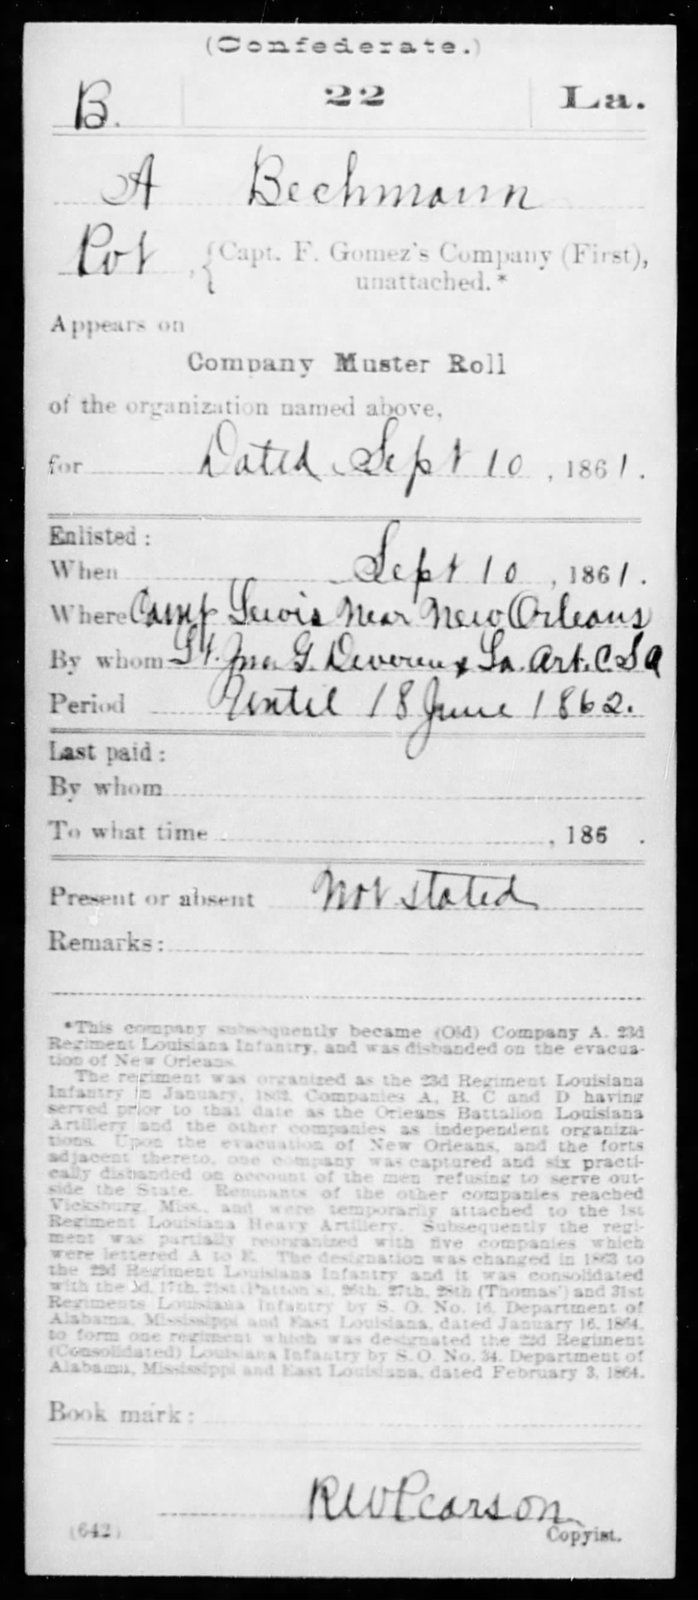 (Confederate.)
B. 22 La.
A Bechmann
Pvt, {Capt. F. Gomez's Company (First),
unattached.*
Appears on
Company Muster Roll
of the organization named above,
for Dated Sept 10, 1861.
Enlisted:
When Sept 10, 1861.
Where Camp Lewis Near New Orleans
By whom Lt. Jno. G. Devereux La. Art. C S A
Period Until 18 June 1862.
Last paid:
By whom
To what time , 186 .
Present or absent Not stated
Remarks:
*This company subsequently became (Old) Company A. 23d
Regiment Louisiana Infantry, and was disbanded on the evacua-
tion of New Orleans.
The regiment was organized as the 23d Regiment Louisiana
Infantry in January, 1862. Companies A, B, C and D having
served prior to that date as the Orleans Battalion Louisiana
Artillery and the other companies as independent organiza-
tions. Upon the evacuation of New Orleans, and the forts
adjacent thereto, one company was captured and six practi-
cally disbanded on account of the men refusing to serve out-
side the State. Remnants of the other companies reached
Vicksburg, Miss., and were temporarily attached to the 1st
Regiment Louisiana Heavy Artillery. Subsequently the regi-
ment was partially reorganized with five companies which
were lettered A to E. The designation was changed in 1863 to
the 22d Regiment Louisiana Infantry and it was consolidated
with the 3d, 17th, 21st (Patton's), 26th, 27th, 28th (Thomas') and 31st
Regiments Louisiana Infantry by S. O. No. 16, Department of
Alabama, Mississippi and East Louisiana, dated January 16, 1864,
to form one regiment which was designated the 22d Regiment
(Consolidated) Louisiana Infantry by S. O. No. 34, Department of
Alabama, Mississippi and East Louisiana, dated February 3, 1864.
Book mark:
R W Pearson
(642) Copyist.